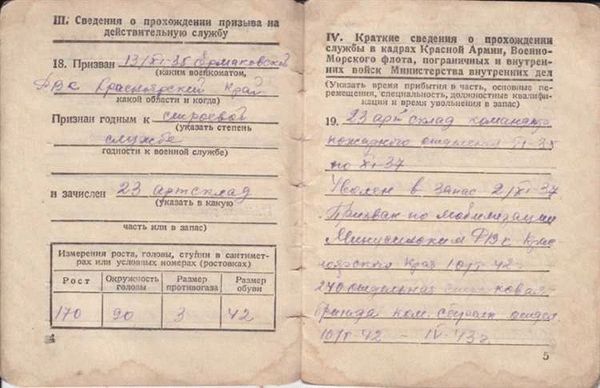 III. Сведения о прохождении призыва на
действительную службу
18. Призван 13/XI-35 Ермаковский
(каким военкоматом,
РВК Красноярский Край
какой области и когда)
Признан годным к строевой
(указать степень
службе
годности к военной службе)
и зачислен 23 артсклад
(указать в какую
часть или в запас)
Измерения роста, головы, ступни в сантимет-
рах или условных номерах (ростовках)
Рост Окружность головы Размер противогаза Размер обуви
170 90 3 42
4
IV. Краткие сведения о прохождении
службы в кадрах Красной Армии, Военно-
Морского флота, пограничных и внутрен-
них войск Министерства внутренних дел
(Указать время прибытия в часть, основные пе-
ремещения, специальность, должностные квалифи-
кации и время увольнения в запас)
19. 23 арт склад
пожарного отделения XI-35
по XI-37
Уволен в запас 2/XI-37
Призван по мобилизации
Минусинским РВК Крас
ноярский Край 10/I-42
240 отдельная
бригада ком. отдел
10/I-42 - IV-43г
5